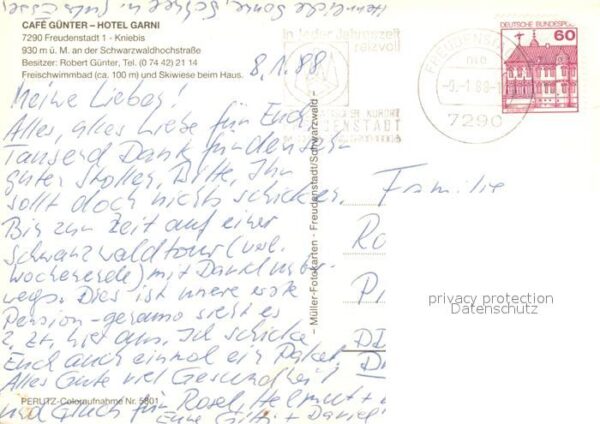 CAFÉ GÜNTER – HOTEL GARNI
7290 Freudenstadt 1 - Kniebis
930 m ü. M. an der Schwarzwaldhochstraße
Besitzer: Robert Günter, Tel. (0 74 42) 21 14
Freischwimmbad (ca. 100 m) und Skiwiese beim Haus.
8.1.88
Meine Lieben!
Alles, alles Liebe für Euch
Tausend Dank für den sehr
guten Stollen. Bitte, Ihr
sollt doch nichts schicken.
Bin zur Zeit auf einer
Schwarzwaldtour (verl.
Wochenende) mit Daniel unter-
wegs. Dies ist unsere erste
Pension - genauso sieht es
z. Zt. hier aus. Ich schicke
Euch auch einmal ein Paket.
Alles Gute viel Gesundheit
und Glück für Rosel, Helmut +
Eure Gitti + Daniel
PERUTZ-Coloraufnahme Nr. 5801
– Müller-Fotokarten - Freudenstadt/Schwarzwald –
In jeder Jahreszeit
reizvoll
KURORT
FREUDENSTADT
7290
DEUTSCHE BUNDESPOST
60
Familie
Ro
P
DI
privacy protection
Datenschutz